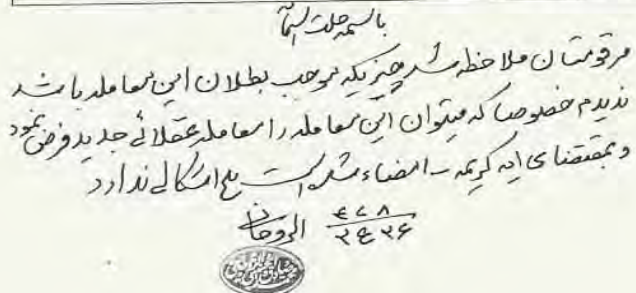 باسمه جلت اسمائه
مرقومتان ملاحظه شد چیزیکه موجب بطلان این معامله باشد
ندیدم خصوصا که میتوان این معامله را معامله عقلائی جدید فرض نمود
و بمقتضای ایه کریمه امضاء شده است علی اشکالی ندارد
الروحانی